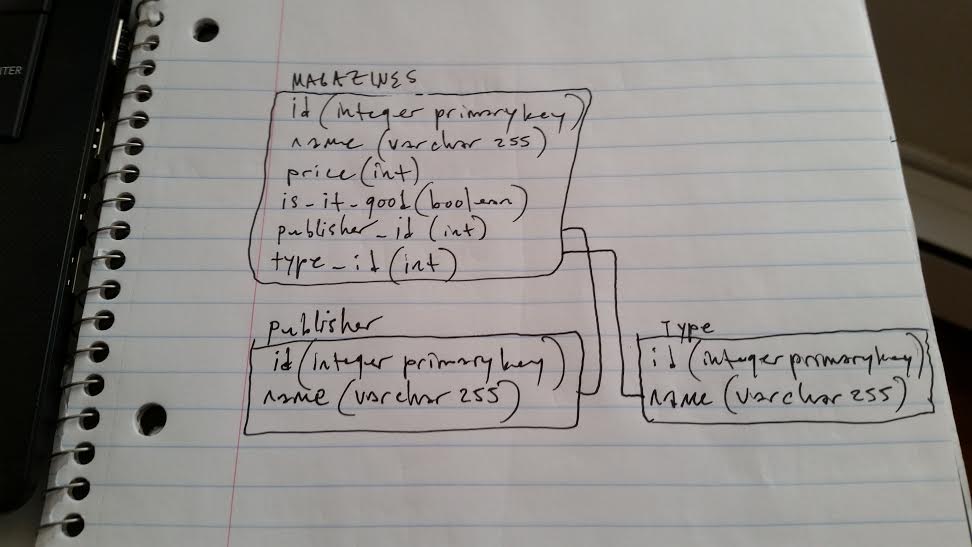 NTER
MAGAZINES
id (integer primary key)
name (varchar 255)
price (int)
is_it_good (boolean)
publisher_id (int)
type_id (int)
publisher
id (integer primary key)
name (varchar 255)
Type
id (integer primary key)
name (varchar 255)